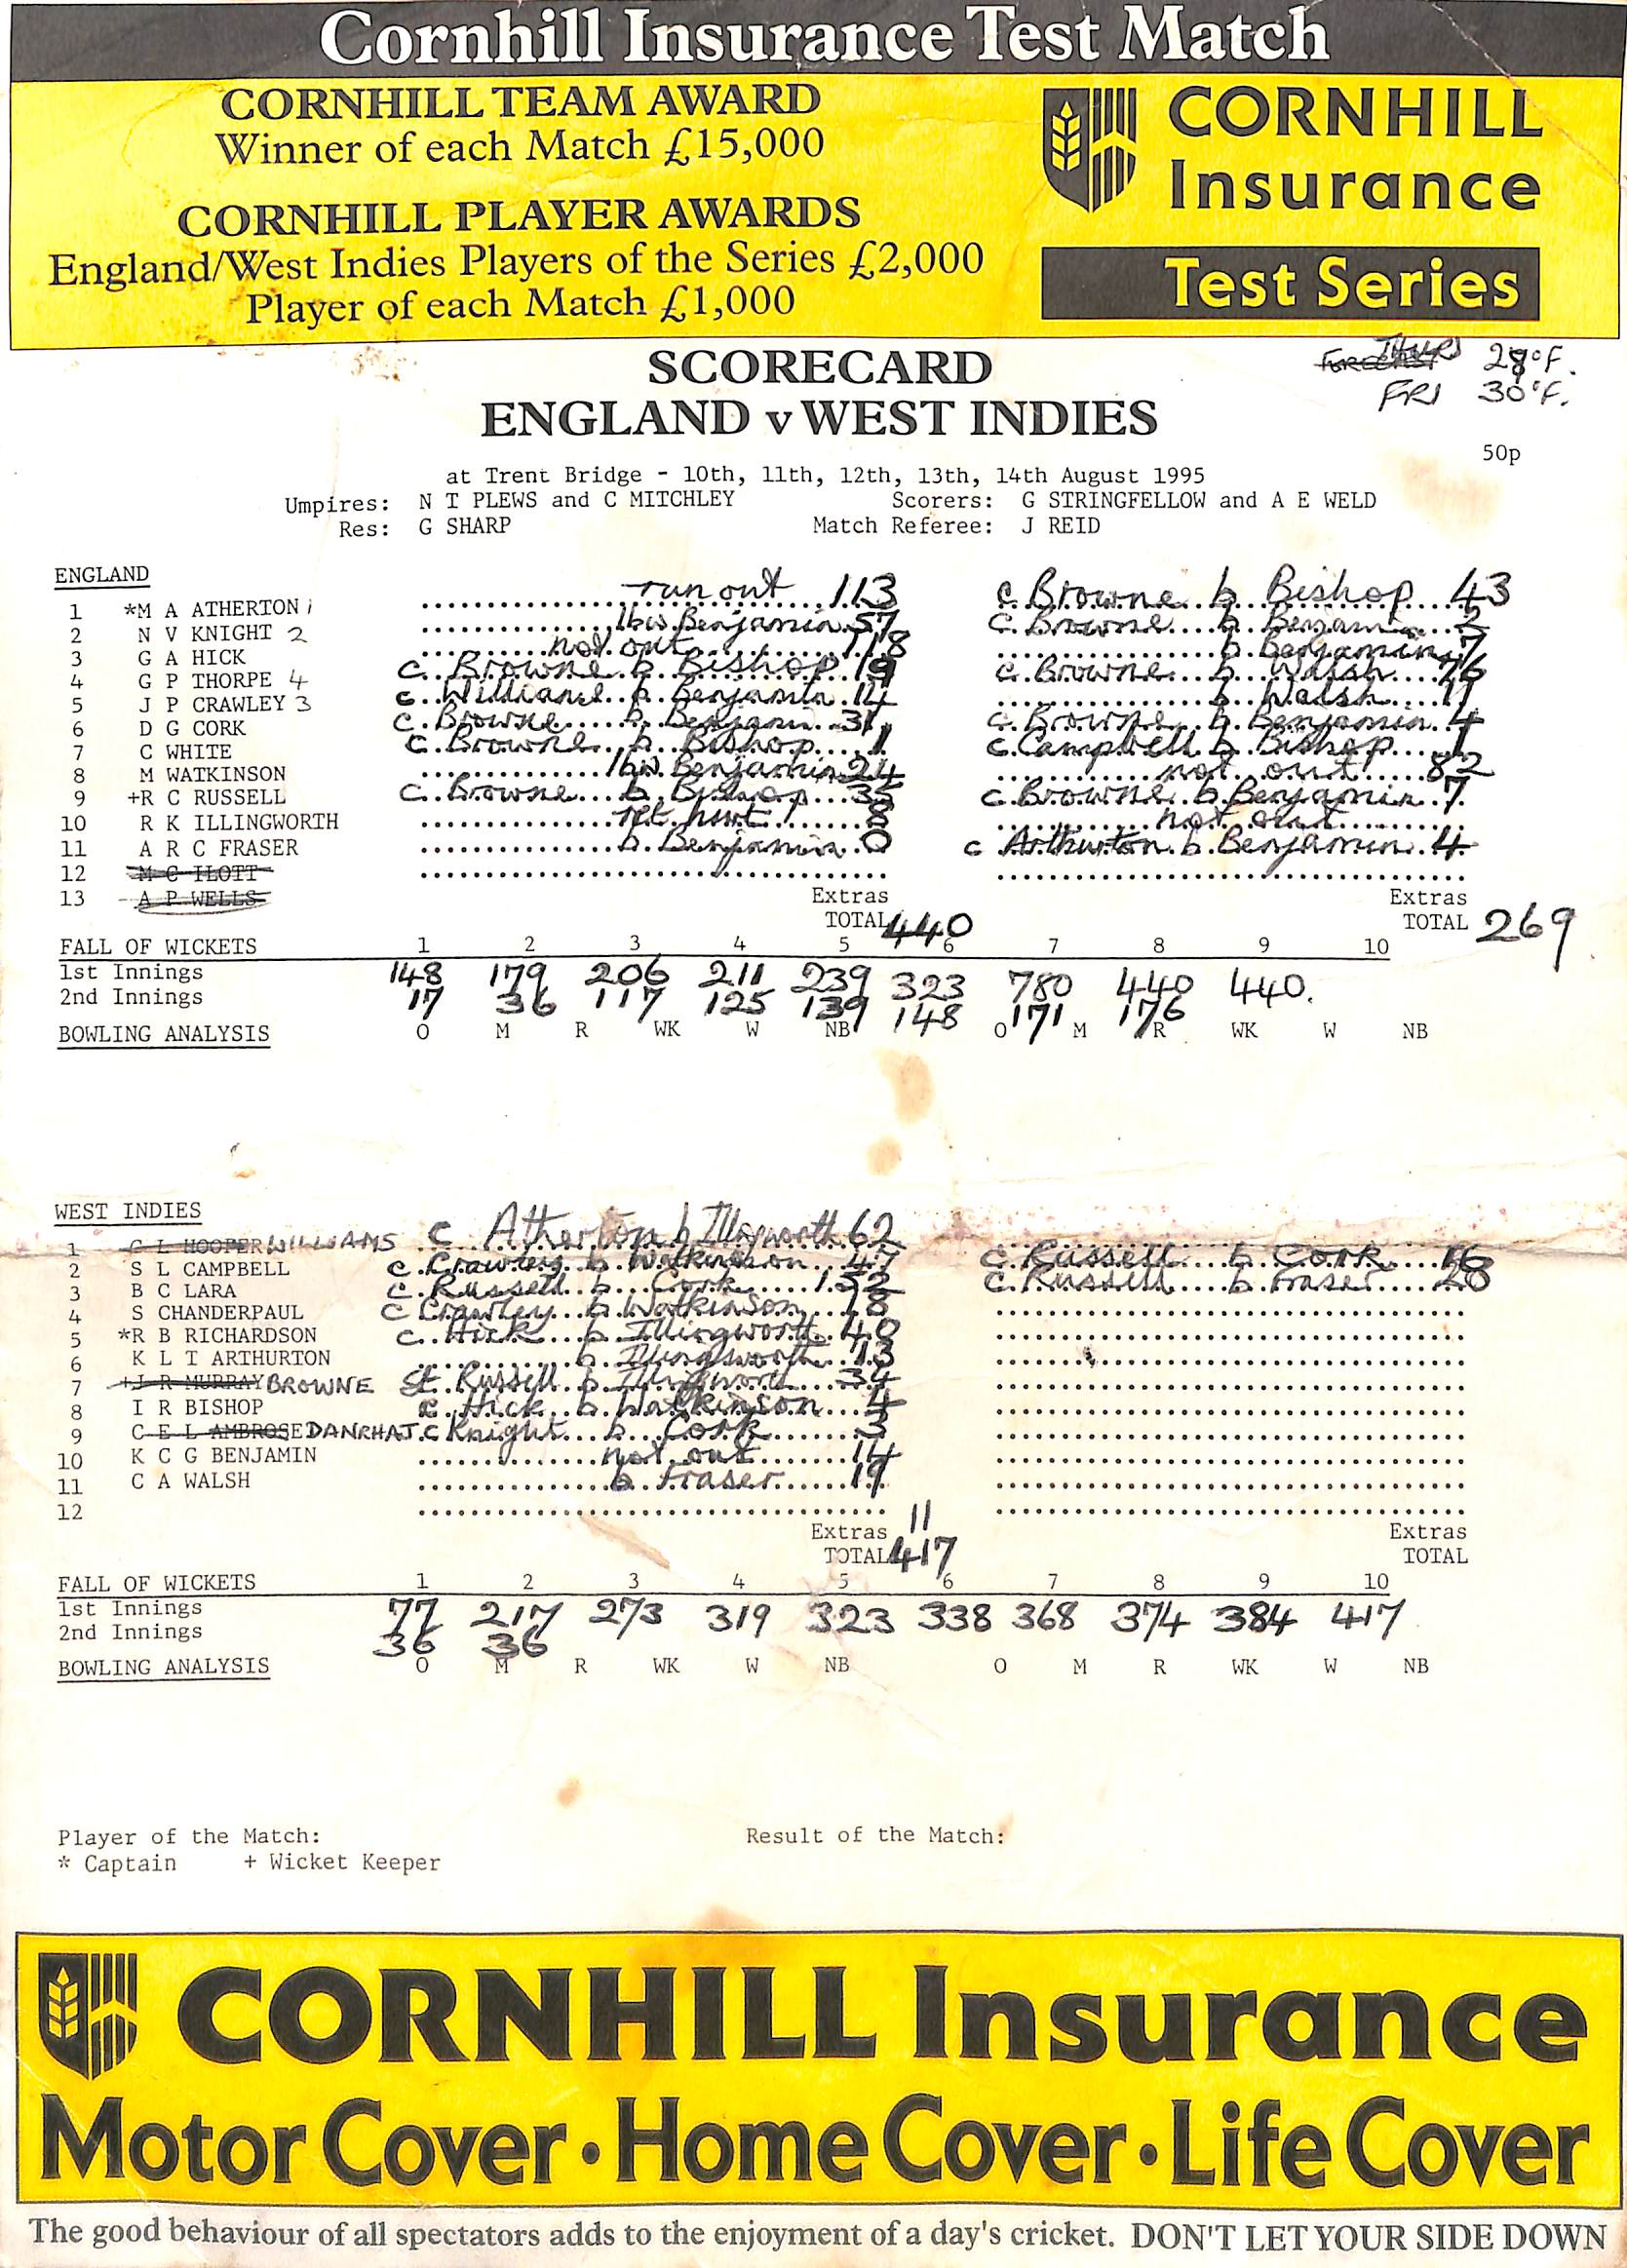 Cornhill Insurance Test Match
CORNHILL TEAM AWARD
Winner of each Match £15,000
CORNHILL PLAYER AWARDS
England/West Indies Players of the Series £2,000
Player of each Match £1,000
CORNHILL
Insurance
Test Series
SCORECARD
ENGLAND v WEST INDIES
THURS 29°F.
FRI 30°F.
50p
at Trent Bridge - 10th, 11th, 12th, 13th, 14th August 1995
Umpires: N T PLEWS and C MITCHLEY Scorers: G STRINGFELLOW and A E WELD
Res: G SHARP Match Referee: J REID
ENGLAND
1 *M A ATHERTON 1 run out 113 c Browne b Bishop 43
2 N V KNIGHT 2 lbw Benjamin 57 c Browne b Benjamin 2
3 G A HICK not out 118 b Benjamin 7
4 G P THORPE 4 c Browne b Bishop 19 c Browne b Walsh 76
5 J P CRAWLEY 3 c Williams b Benjamin 14 b Walsh 11
6 D G CORK c Browne b Benjamin 31 c Browne b Benjamin 4
7 C WHITE c Browne b Bishop 1 c Campbell b Bishop 1
8 M WATKINSON lbw Benjamin 24 not out 82
9 +R C RUSSELL c Browne b Bishop 35 c Browne b Benjamin 7
10 R K ILLINGWORTH ret hurt 8 not out
11 A R C FRASER b Benjamin 0 c Arthurton b Benjamin 4
12 M C ILOTT
13 A P WELLS
Extras Extras
TOTAL 440 TOTAL 269
FALL OF WICKETS 1 2 3 4 5 6 7 8 9 10
1st Innings 148 179 206 211 239 323 780 440 440.
2nd Innings 17 36 117 125 139 148 171 176
BOWLING ANALYSIS O M R WK W NB O M R WK W NB
WEST INDIES
1 C L HOOPER WILLIAMS c Atherton b Illingworth 62
2 S L CAMPBELL c Crawley b Watkinson 47 c Russell b Cork 16
3 B C LARA c Russell b Cork 152 c Russell b Fraser 20
4 S CHANDERPAUL c Crawley b Watkinson 18
5 *R B RICHARDSON c Hick b Illingworth 40
6 K L T ARTHURTON b Illingsworth 13
7 +J R MURRAY BROWNE St Russell b Illingworth 34
8 I R BISHOP c Hick b Watkinson 4
9 C E L AMBROSE DANRHAT c Knight b Cork 3
10 K C G BENJAMIN not out 14
11 C A WALSH b Fraser 19
12
Extras 11 Extras
TOTAL 417 TOTAL
FALL OF WICKETS 1 2 3 4 5 6 7 8 9 10
1st Innings 77 217 273 319 323 338 368 374 384 417
2nd Innings 36 36
BOWLING ANALYSIS O M R WK W NB O M R WK W NB
Player of the Match: Result of the Match:
* Captain + Wicket Keeper
CORNHILL Insurance
Motor Cover · Home Cover · Life Cover
The good behaviour of all spectators adds to the enjoyment of a day's cricket. DON'T LET YOUR SIDE DOWN